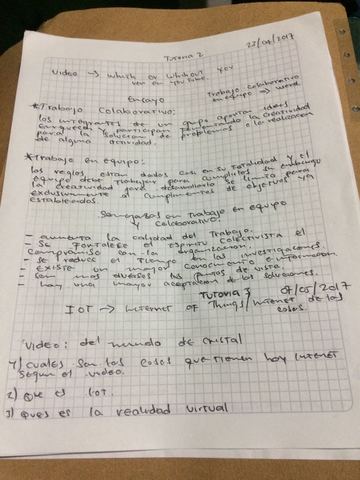 Tutoria 2
23/04/2017
Video → which or whithout you
ver en youtube.
Ensayo
Trabajo colaborativo
en equipo → word.
*Trabajo Colaborativo:
los integrantes de un grupo aportan ideas
participan la creatividad
para la solucion de problemas o la realizacion
de alguna actividad.
*Trabajo en equipo:
las reglas estan dadas casi en su totalidad y el
equipo debe trabajar para cumplirlas sin embargo
la creatividad para desarrollarla se limita para
exclusivamente al cumplimiento de objetivos ya
establecidos.
en Trabajo en equipo
y Colaborativo:
- aumenta la calidad del Trabajo.
- Se fortalece el espiritu colectivista el
compromiso con la organizacion.
- se reduce el tiempo en las investigaciones
- existe un mayor conocimiento e informacion
- son mas diversos los puntos de vista.
- hay una mayor aceptacion de las soluciones.
Tutoria 3 07/05/2017
IOT → internet of Things/internet de las
cosas.
Video: del mundo de cristal
1) cuales son las cosas que tienen hoy internet
segun el video.
2) que es IOT.
3) ques es la realidad virtual